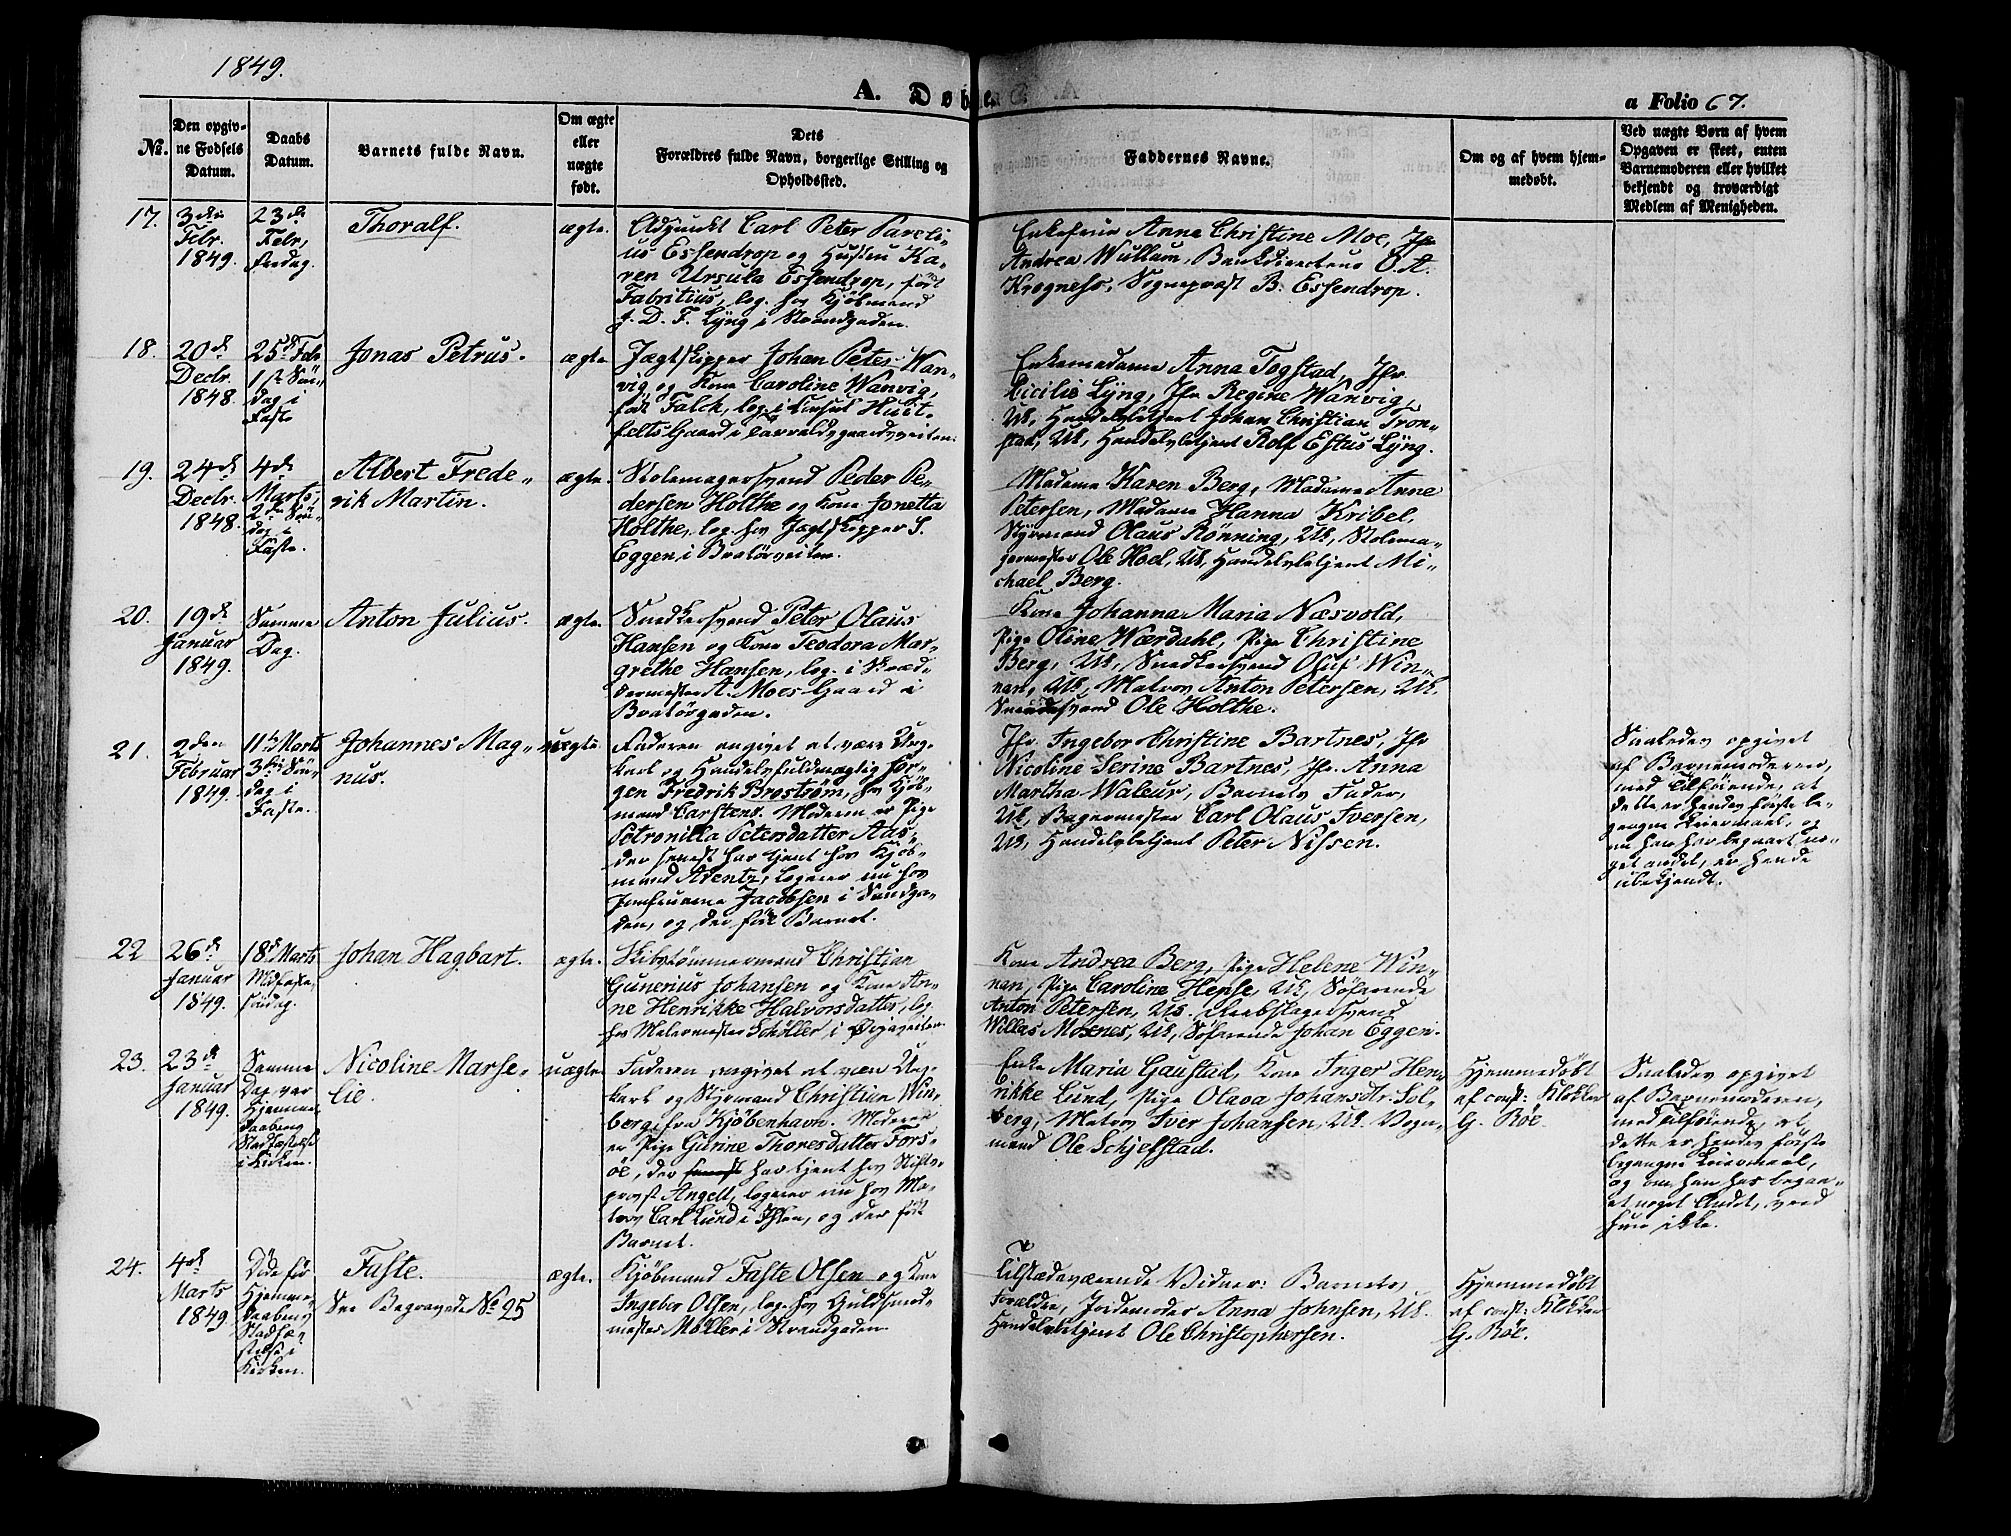 1849.
A. Døbte.
a Folio 67.
No.
Den opgiv-
ne Fødsels
Datum.
Daabs
Datum.
Barnets fulde Navn.
Om ægte
eller
uægte
født.
Dets
Forældres fulde Navn, borgerlige Stilling og
Opholdssted.
Faddernes Navne.
Om og af hvem hjem-
medøbt.
Ved uægte Børn af hvem
Opgaven er skeet, enten
Barnemoderen eller hvilket
bekjendt og troværdigt
Medlem af Menigheden.
17.
3die
Febr.
1849.
23de
Febr,
Fredag.
Thoralf.
ægte.
Adjunkt Carl Peter Pareli-
us Essendrop og Hustru Ka-
ren Ursula Essendrop, født
Fabritius, log. hos Kjøbmand
J. D. F. Lÿng i Strandgaden.
Enkefrue Anna Christine Moe, Jfr
Andrea Wullum, Bankdirecteur O. A.
Krogness, Sogneprest B. Essendrop.
18.
20de
Decbr.
1848.
25de Febr
1ste Søn-
dag i
Faste
Jonas Petrus.
ægte
Jægtskipper Johan Peter Wan-
vig og Kone Caroline Wanvig,
født Falck, log. i Consul Huit-
felts Gaard i
Enkemadame Anna Togstad, Jfr.
Cicilie Lÿng, Jfr Regine Wanvig,
UK, Handelsbetjent Johan Christian Tron-
stad, UK, Handelsbetjent Rolf Estus Lÿng.
19.
24de
Decbr.
1848.
4de
Marts,
2den Søn-
dag i
Faste.
Albert Frede-
rik Martin.
ægte.
Stolemagersvend Peder Pe-
dersen Holthe og Kone Jonetta
Holthe, log. hos Jægtskipper S.
Eggen i Bratørveiten.
Madame Karen Berg, Madame Anne
Petersen, Madame Hanna Kribel,
Styrmand Olaus Rønning, UK, Stolema-
germester Ole Hoel, UK, Handelsbetjent Mi-
chael Berg.
20.
19de
Januar
1849.
Samme
Dag.
Anton Julius.
ægte.
Snedkersvend Peter Olaus
Hansen og Kone Teodora Mar-
grethe Hansen, log. i Skræd-
dermester A. Moes Gaard i
Bratørgaden.
Kone Johanna Maria Næsvold,
Pige Oline Wærdahl, Pige Christine
Berg, UK, Snedkersvend Oluf Win-
nan, UK, Matros Anton Petersen, UK.
Snedkersvend Ole Holthe.
21.
2den
Februar
1849.
11te Marts
3die Søn-
dag i
Faste.
Johannes Mag-
nus.
uægte.
Faderen angivet at være Ung-
karl og Handelsfuldmægtig Jør-
gen Fredrik Brostrøm, hos Kjøb-
mand Carstens. Moderen er Pige
Petronilla Petersdatter Aas,
der senest har tjent hos Kjøb-
mand Arentz, logerer nu hos
Jomfruerne Jacobsen i Sandga-
den, og der født Barnet.
Jfr. Ingebor Christine Bartnes, Jfr
Nicoline Serine Bartnes, Jfr. Anna
Martha Waleur, Barnets Fader,
UK, Bagermester Carl Olaus Iversen,
UK, Handelsbetjent Peter Nissen.
Saaledes opgivet
af Barnemoderen,
med Tilføiende, at
dette er hendes første be-
gangne Leiermaal, og
om han har begaaet no-
get andet, er hende
ubekjendt.
22
26de
Januar
1849.
18de Marts
Midfaste
søndag.
Johan Hagbart.
ægte.
Skibstømmermand Christian
Gunerius Johansen og Kone An-
ne Henrikke Halvorsdatter, log.
hos Malermester Schöller i
Kone Andrea Berg, Pige Helene Win-
nan, Pige Caroline Hepsø, UK, Søfarende
Anton Petersen, UK. Rebslagersvend
Willas Mosnes, UK, Søfarende Johan Eggen.
23.
23de
Januar
1849.
Samme
Dag var
Hjemme
daabens
Stadfæstelse
i Kirken.
Nicoline Marse-
lie.
uægte
Faderen angivet at være Ung-
karl og Styrmand Christian Win-
berg, fra Kjøbenhavn. Moderen
er Pige Gurine Thoresdatter Fors-
øe, der senest har tjent hos Stifts-
provst Angell, logerer nu hos Ma-
tros Carl Lund i Ihlen, og der født
Barnet.
Enke Maria Gaustad, Kone Inger Hen-
rikke Lund, Pige Olava Johansdr. Sol-
berg, Matros Iver Johansen, UK. Vogn-
mand Ole Schjefstad.
Hjemmedøbt
af const: Klokker
G. Røe.
Saaledes opgivet
af Barnemoderen,
med Tilføiende, at
dette er hendes første
begangne Leiermaal,
og om han har begaa-
et noget Andet, veed
hun ikke.
24.
4de
Marts
1849.
Døde før
Hjemme
daabens
Stadfæ-
stelse i
Kirken.
Faste.
See Begravede No 25
ægte.
Kjøbmand Faste Olsen og Kone
Ingebor Olsen, log. hos Guldsmed-
mester Møller i Strandgaden.
Tilstedeværende Vidner: Barnets
Forældre, Jordemoder Anna Johnsen, UK.
Handelsbetjent Ole Christophersen.
Hjemmedøbt
af const: Klokker
G. Røe.